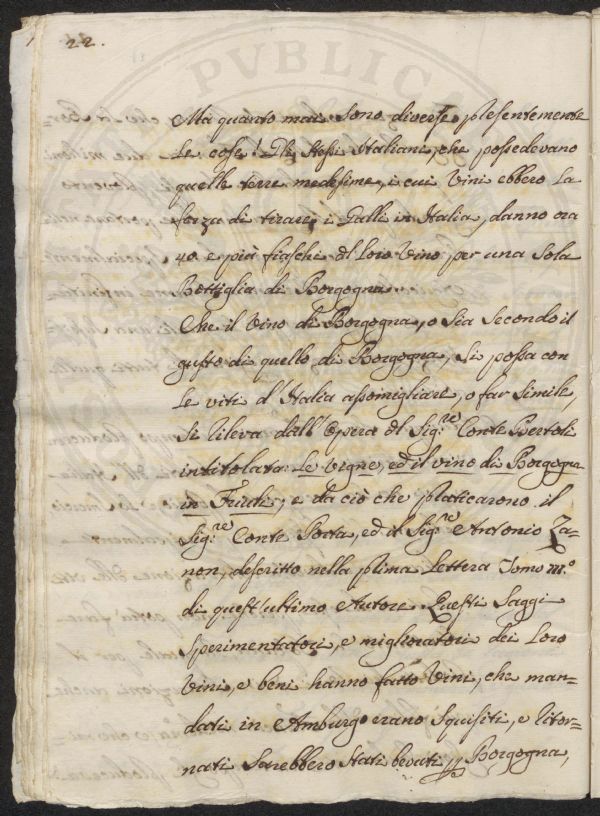 22.
PVBLICA
Ma quanto mai sono diverse presentemente
le cose! Gli stessi Italiani, che possedevano
quelle terre medesime, i cui Vini ebbero la
forza di tirare i Galli in Italia, danno ora
40 e più fiaschi del loro Vino per una sola
Bottiglia di Borgogna.
Che il Vino di Borgogna, o sia secondo il
gusto di quello di Borgogna, si possa con
le viti d'Italia assomigliare, o far simile,
si rileva dall'Opera del Sig.re Conte Bertoli
intitolata: Le vigne, ed il vino di Borgogna
in Friuli; e da ciò che praticarono il
Sig.re Conte Porta, ed il Sig.re Antonio Za=
non, descritto nella prima Lettera Tomo III.o
di quest'ultimo Autore. Questi Saggi
sperimentatori, e miglioratori dei loro
Vini, e beni hanno fatto Vini, che man=
dati in Amburgo erano squisiti, e ritor=
nati sarebbero stati bevuti per Borgogna,